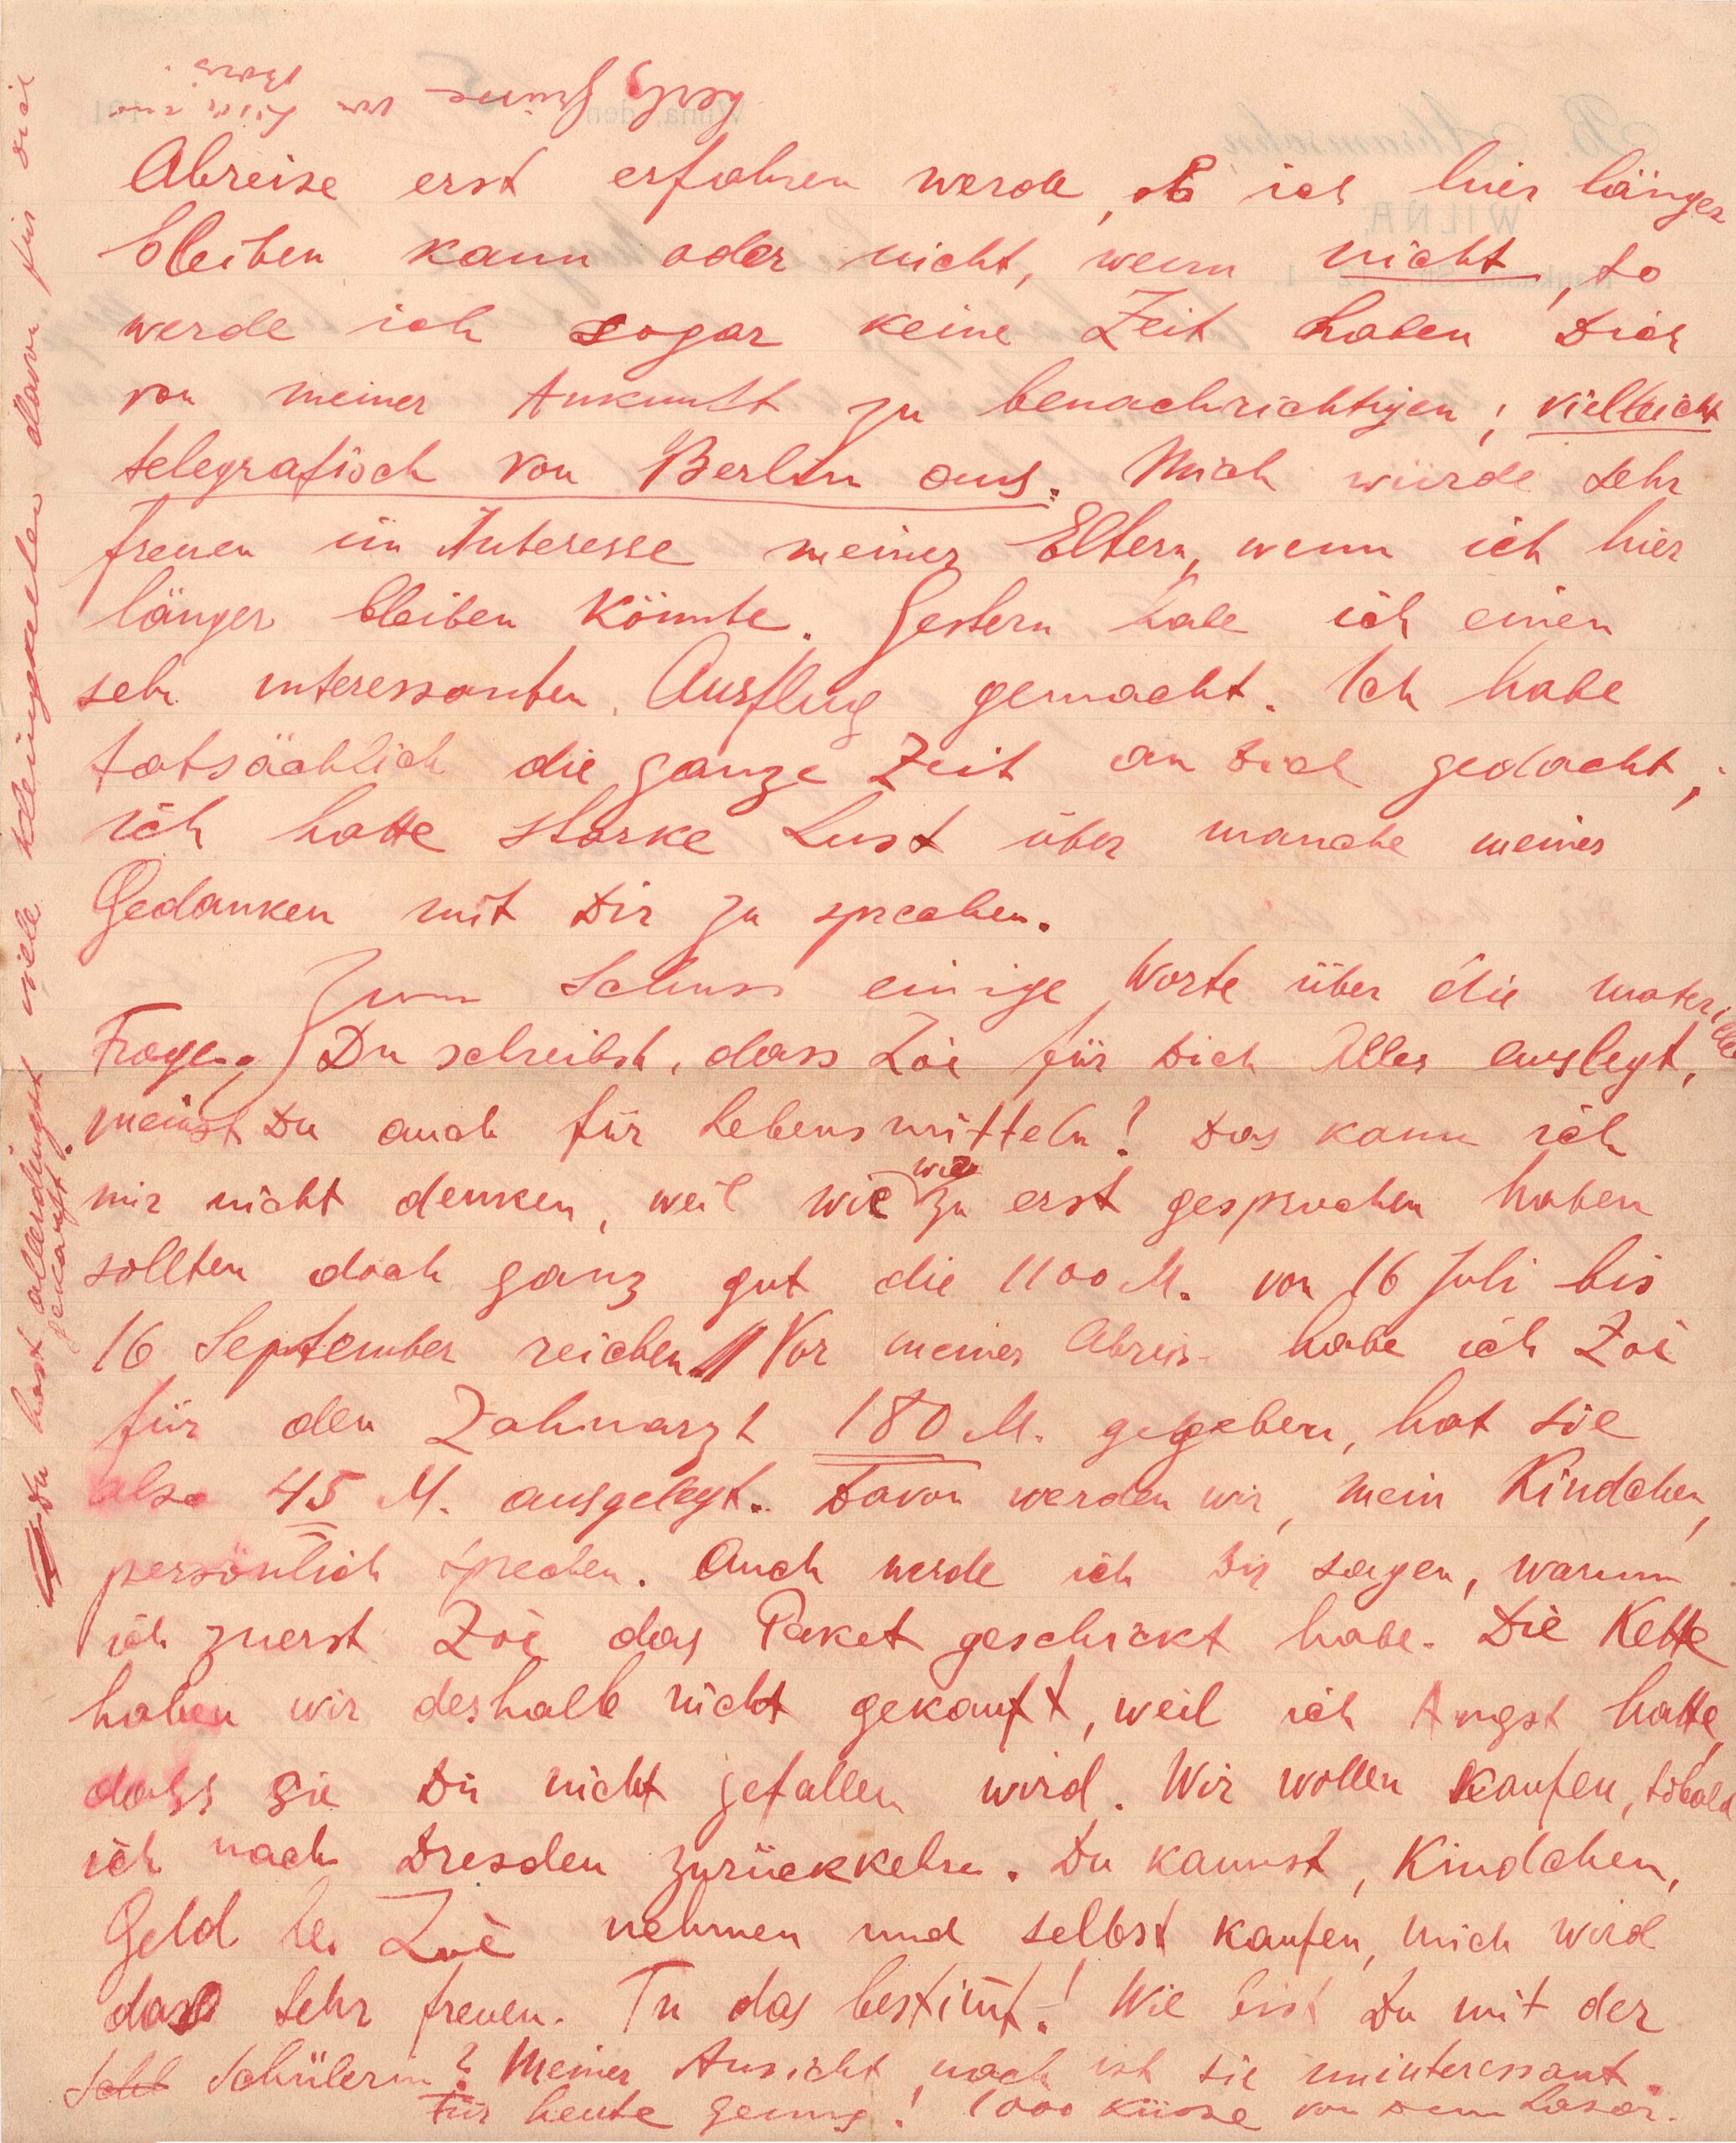 Abreise erst erfahren werde, ob ich hier länger
bleiben kann oder nicht, wenn nicht, so
werde ich sogar keine Zeit haben Dich
von meiner Ankunft zu benachrichtigen; vielleicht
telegrafisch von Berlin aus. Mich würde sehr
freuen im Interesse meiner Eltern, wenn ich hier
länger bleiben könnte. Gestern habe ich einen
sehr interessanten Ausflug gemacht. Ich habe
tatsächlich die ganze Zeit an Dich gedacht,
ich hatte starke Lust über manche meiner
Gedanken mit Dir zu sprechen.
Zum Schuss einige Worte über die materielle
Frage. Du schreibst, dass Zoë für Dich Alles auslegt,
meinst Du auch für Lebensmitteln? Das kann ich
mir nicht denken, weil wie wir zu erst gesprochen haben
sollten doch ganz gut die 1100 M. von 16 Juli bis
16 September reichen. Vor meiner Abreis- habe ich Zoë
für den Zahnarzt 180 M. gegeben, hat sie
also 45 M. ausgelegt. Davon werden wir, mein Kindchen,
persönlich sprechen. Auch werde ich Dir sagen, warum
ich zuerst Zoë das Paket geschickt habe. Die Kette
haben wir deshalb nicht gekauft, weil ich Angst hatte,
dass sie Dir nicht gefallen wird. Wir wollen kaufen, sobald
ich nach Dresden zurückkehre. Du kannst, Kindchen,
Geld bei Zoë nehmen und selbst kaufen, mich wird
das sehr freuen. Tu das bestimt! Wie bist Du mit der
Schülerin? Meiner Ansicht nach ist sie uninteressant.
Für heute genug! 1000 Küsse von Dein Lasar.
Du hast allerdingst viele Kleinigkeiten davon für dich
gekauft.
herzl. Grüsse von
Boris.
B.
WILNA
Wilna, den